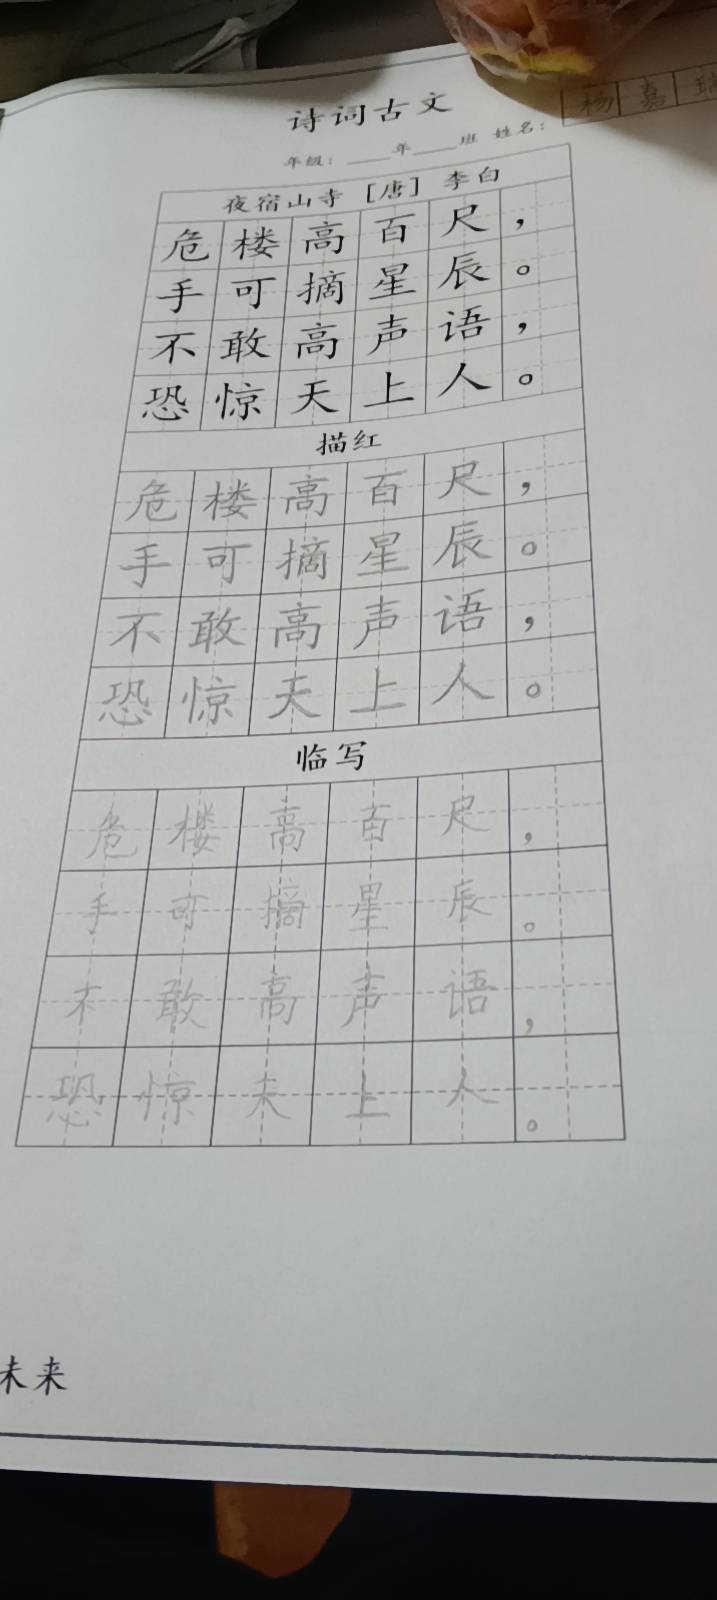 诗词古文
年级：____年____班 姓名：杨嘉瑞
夜宿山寺 [唐] 李白
危楼高百尺，
手可摘星辰。
不敢高声语，
恐惊天上人。
描红
危楼高百尺，
手可摘星辰。
不敢高声语，
恐惊天上人。
临写
危楼高百尺，
手可摘星辰。
不敢高声语，
恐惊天上人。
未来